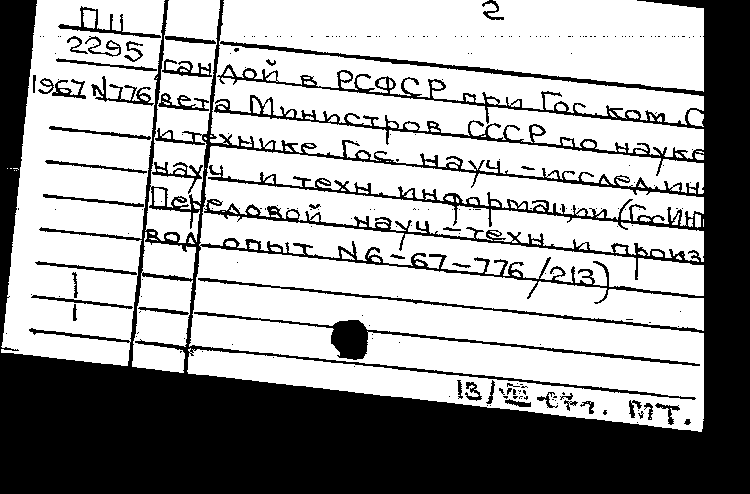 П11 2
2295 гандой в РСФСР при Гос.ком.С
1967 N776 вета Министров СССР по науке
и технике. Гос. науч.-исслед.ин
науч. и техн. информации (ГОСИНТ
Передовой науч.-техн. и произ
вод. опыт. N6-67-776/213)
13/VIII-67г. МТ.